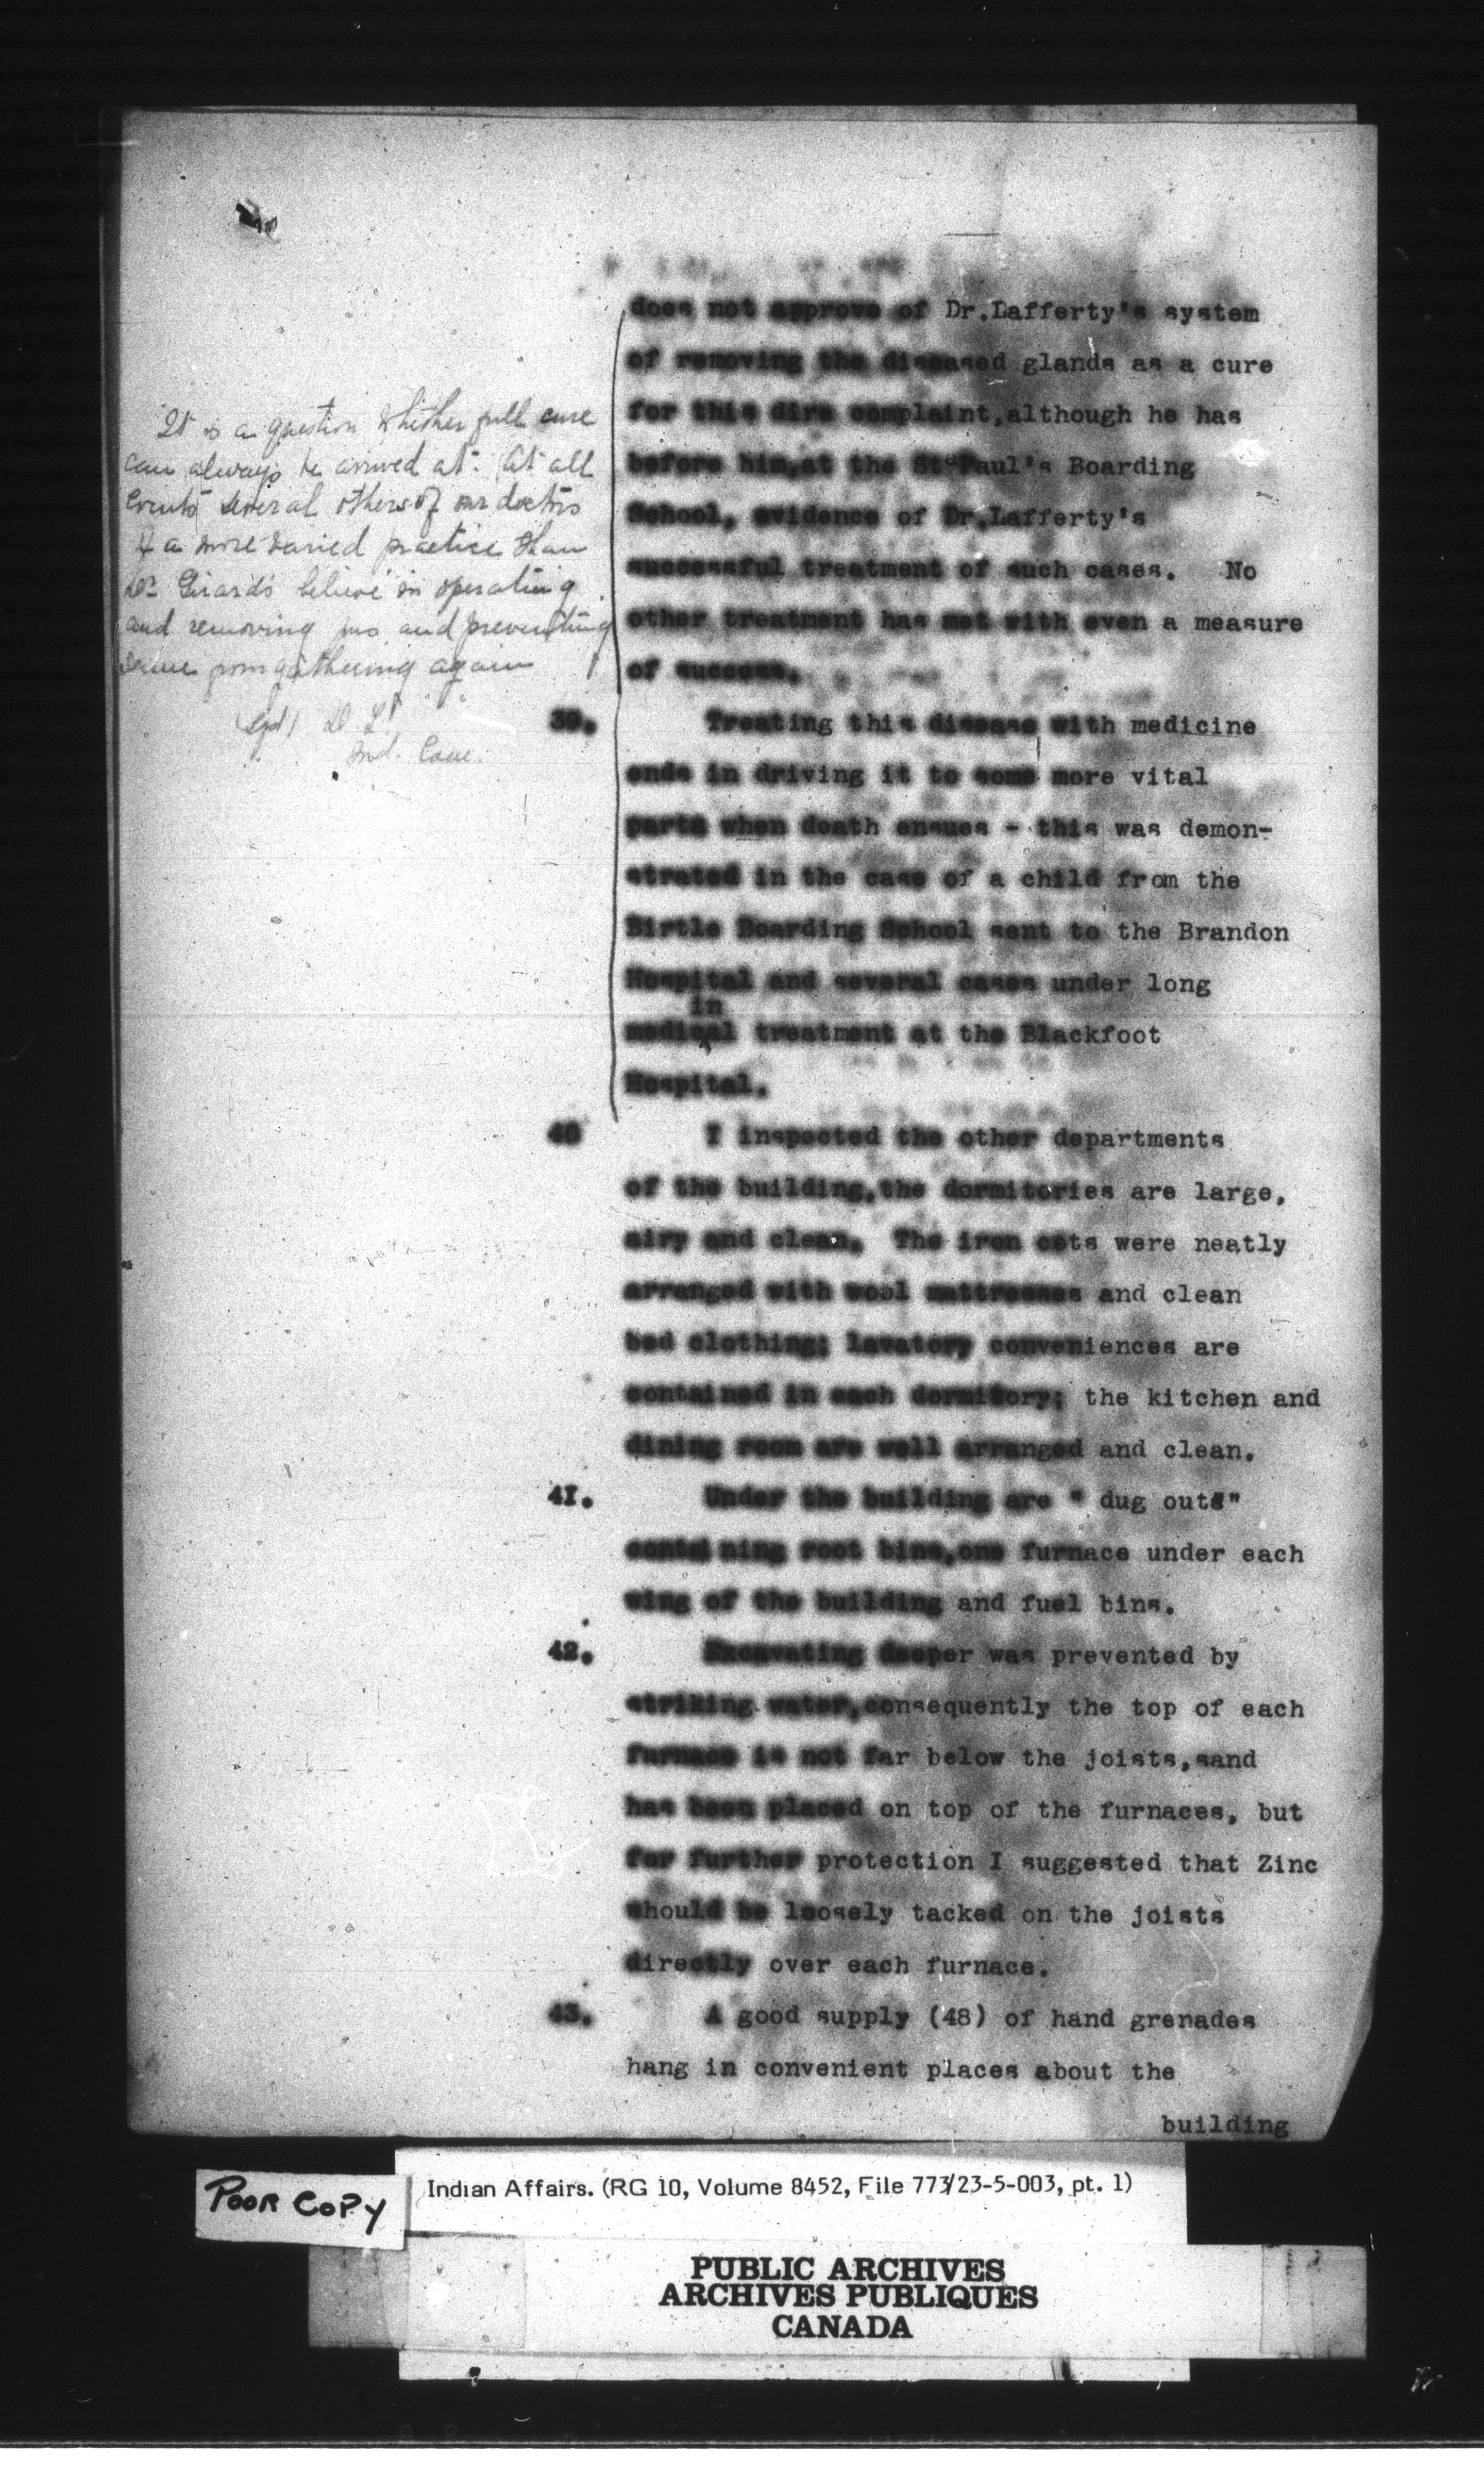 does not approve of Dr.Lafferty's system
of removing the diseased glands as a cure
for this dire complaint,although he has
before him,at the St Paul's Boarding
School, evidence of Dr.Lafferty's
successful treatment of such cases. No
other treatment has met with even a measure
of success.
It is a question whether full cure
can always be arrived at. At all
events several others of our doctors
of a more varied practice than
Dr. Girard's believe in operating
and removing pus and preventing
same from gathering again
Sgd/ D L
Ind. Com.
39. Treating this disease with medicine
ends in driving it to some more vital
parts when death ensues - this was demon-
strated in the case of a child from the
Birtle Boarding School sent to the Brandon
Hospital and several cases under long
in
medical treatment at the Blackfoot
Hospital.
40 I inspected the other departments
of the building,the dormitories are large,
airy and clean. The iron cots were neatly
arranged with wool mattresses and clean
bed clothing; lavatory conveniences are
contained in each dormitory; the kitchen and
dining room are well arranged and clean.
41. Under the building are " dug outs"
containing root bins,one furnace under each
wing of the building and fuel bins.
42. Excavating deeper was prevented by
striking water,consequently the top of each
furnace is not far below the joists,sand
has been placed on top of the furnaces, but
for further protection I suggested that Zinc
should be loosely tacked on the joists
directly over each furnace.
43. A good supply (48) of hand grenades
hang in convenient places about the
building
POOR COPY
Indian Affairs. (RG 10, Volume 8452, File 773/23-5-003, pt. 1)
PUBLIC ARCHIVES
ARCHIVES PUBLIQUES
CANADA